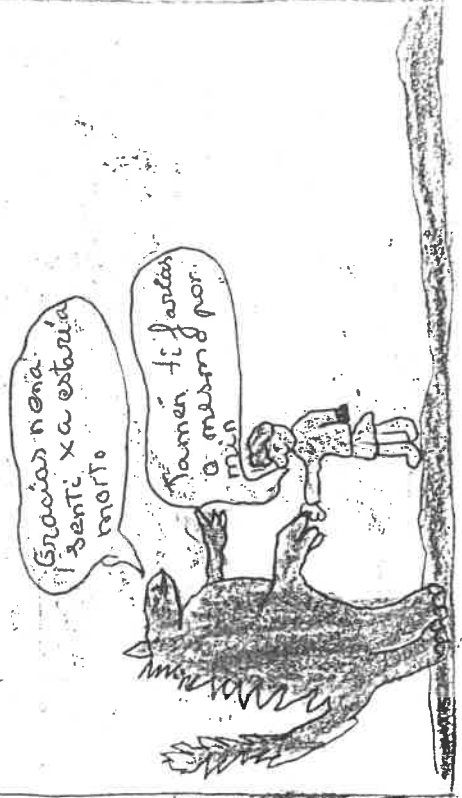 Gracias nena
senti xa estaría
morto
Tamén ti farías
o mesmo por
min